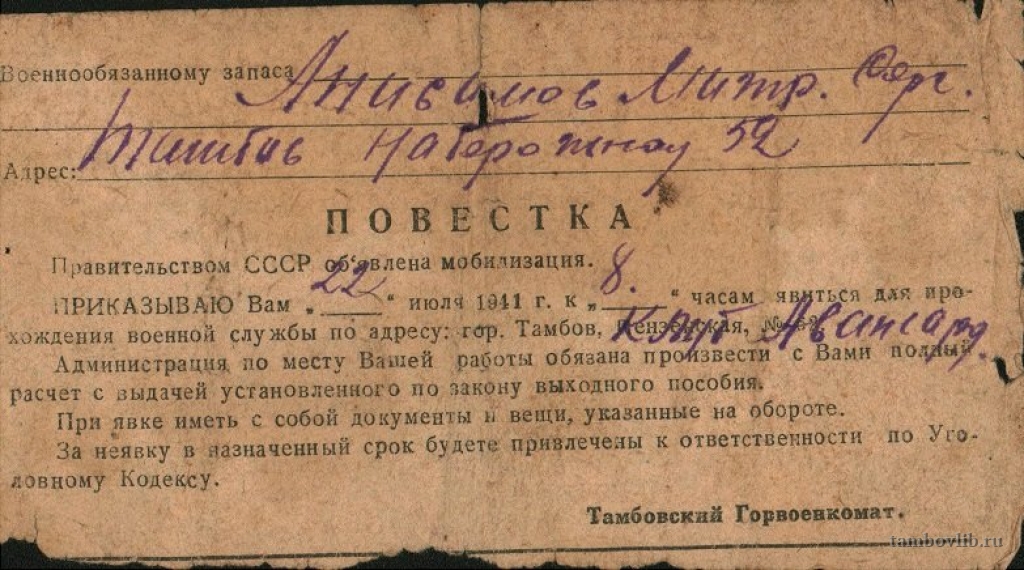 Военнообязанному запаса Анисимов Митр. Серг.
Адрес: Тамбов Набережная 52
ПОВЕСТКА
Правительством СССР объявлена мобилизация.
ПРИКАЗЫВАЮ Вам „22“ июля 1941 г. к „8.“ часам явиться для про-
хождения военной службы по адресу: гор. Тамбов, Пензенская, № клуб Авангард
Администрация по месту Вашей работы обязана произвести с Вами полный
расчет с выдачей установленного по закону выходного пособия.
При явке иметь с собой документы и вещи, указанные на обороте.
За неявку в назначенный срок будете привлечены к ответственности по Уго-
ловному Кодексу.
Тамбовский Горвоенкомат.
tambovlib.ru